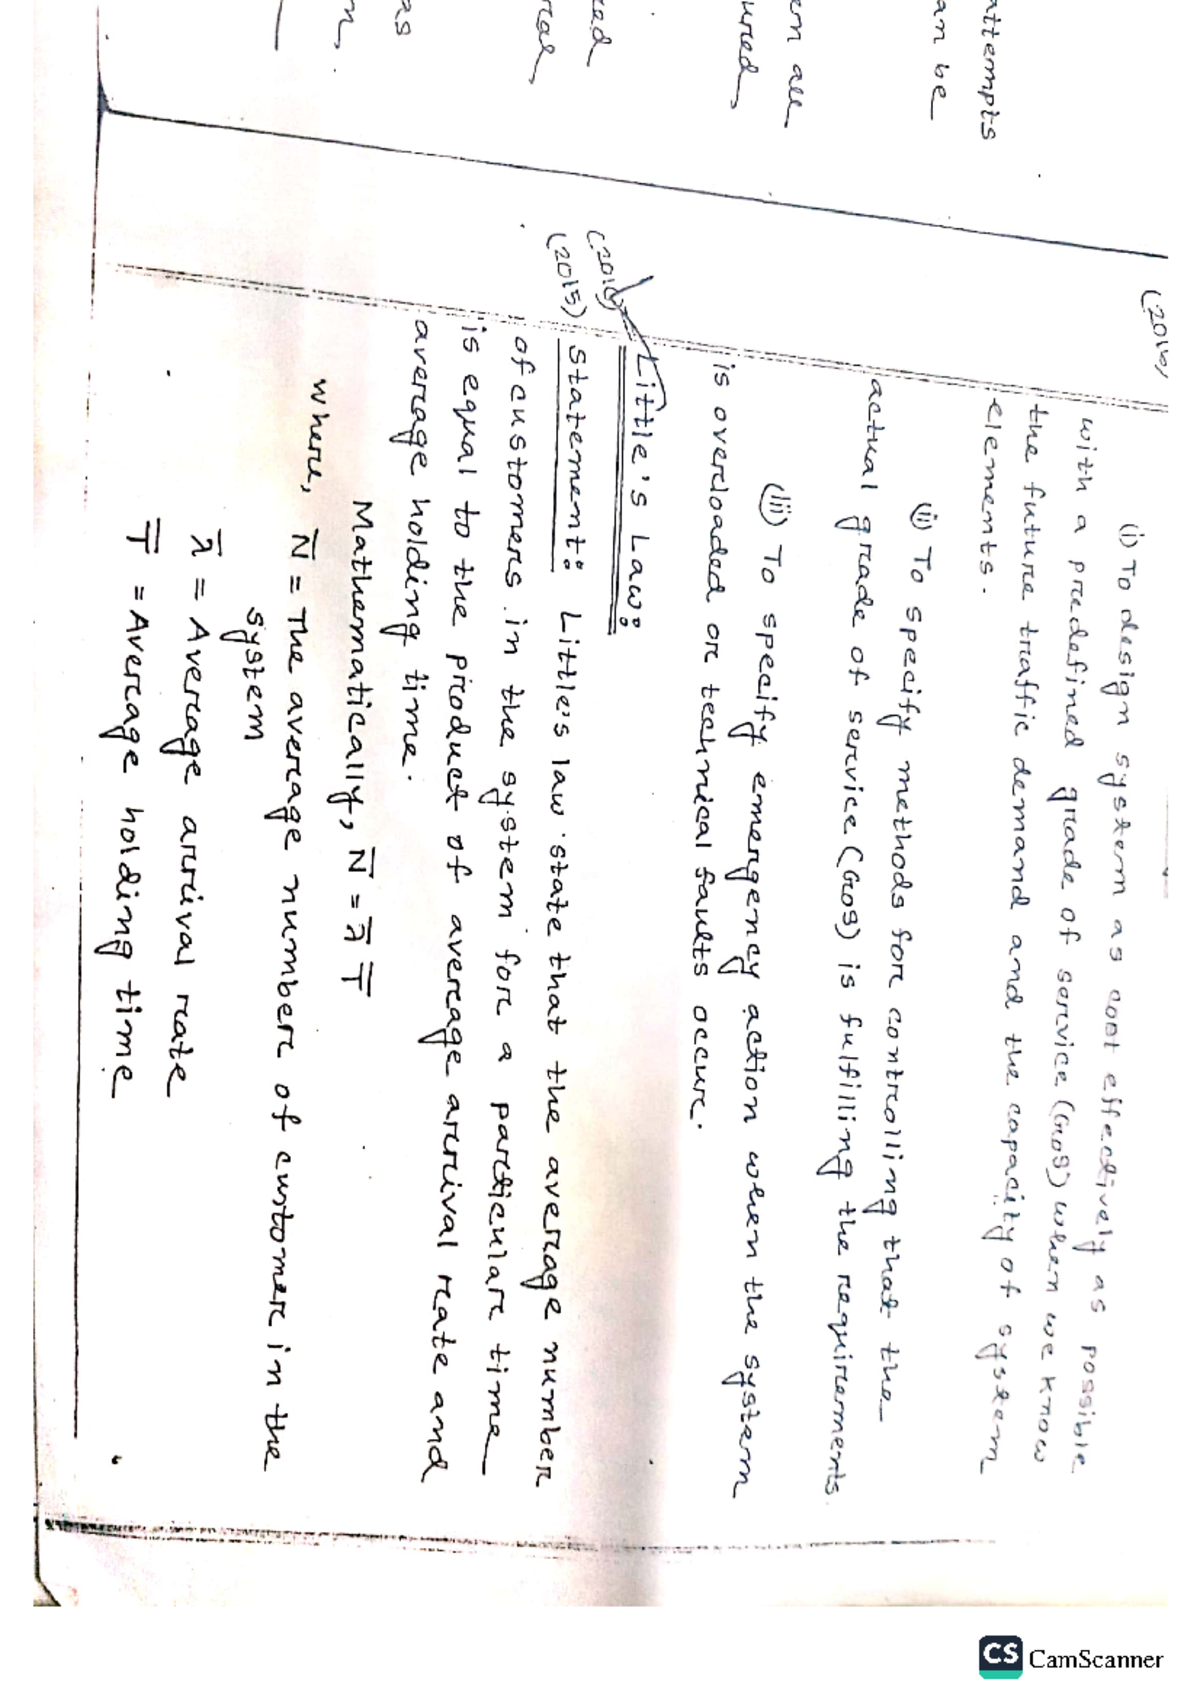 (2016)
(i) To design system as cost effectively as possible
with a predefined grade of service (GoS) when we know
the future traffic demand and the capacity of system
elements.
(ii) To specify methods for controlling that the
actual grade of service (GoS) is fulfilling the requirements.
(iii) To specify emergency action when the system
is overloaded or technical faults occur.
Little's Law:
(2015) Statement: Little's law state that the average number
of customers in the system for a particular time
is equal to the product of average arrival rate and
average holding time.
Mathematically, N̅ = λ̅ T̅
where, N̅ = The average number of customer in the
system
λ̅ = Average arrival rate
T̅ = Average holding time
attempts
an be
em all
ured,
as
CS CamScanner